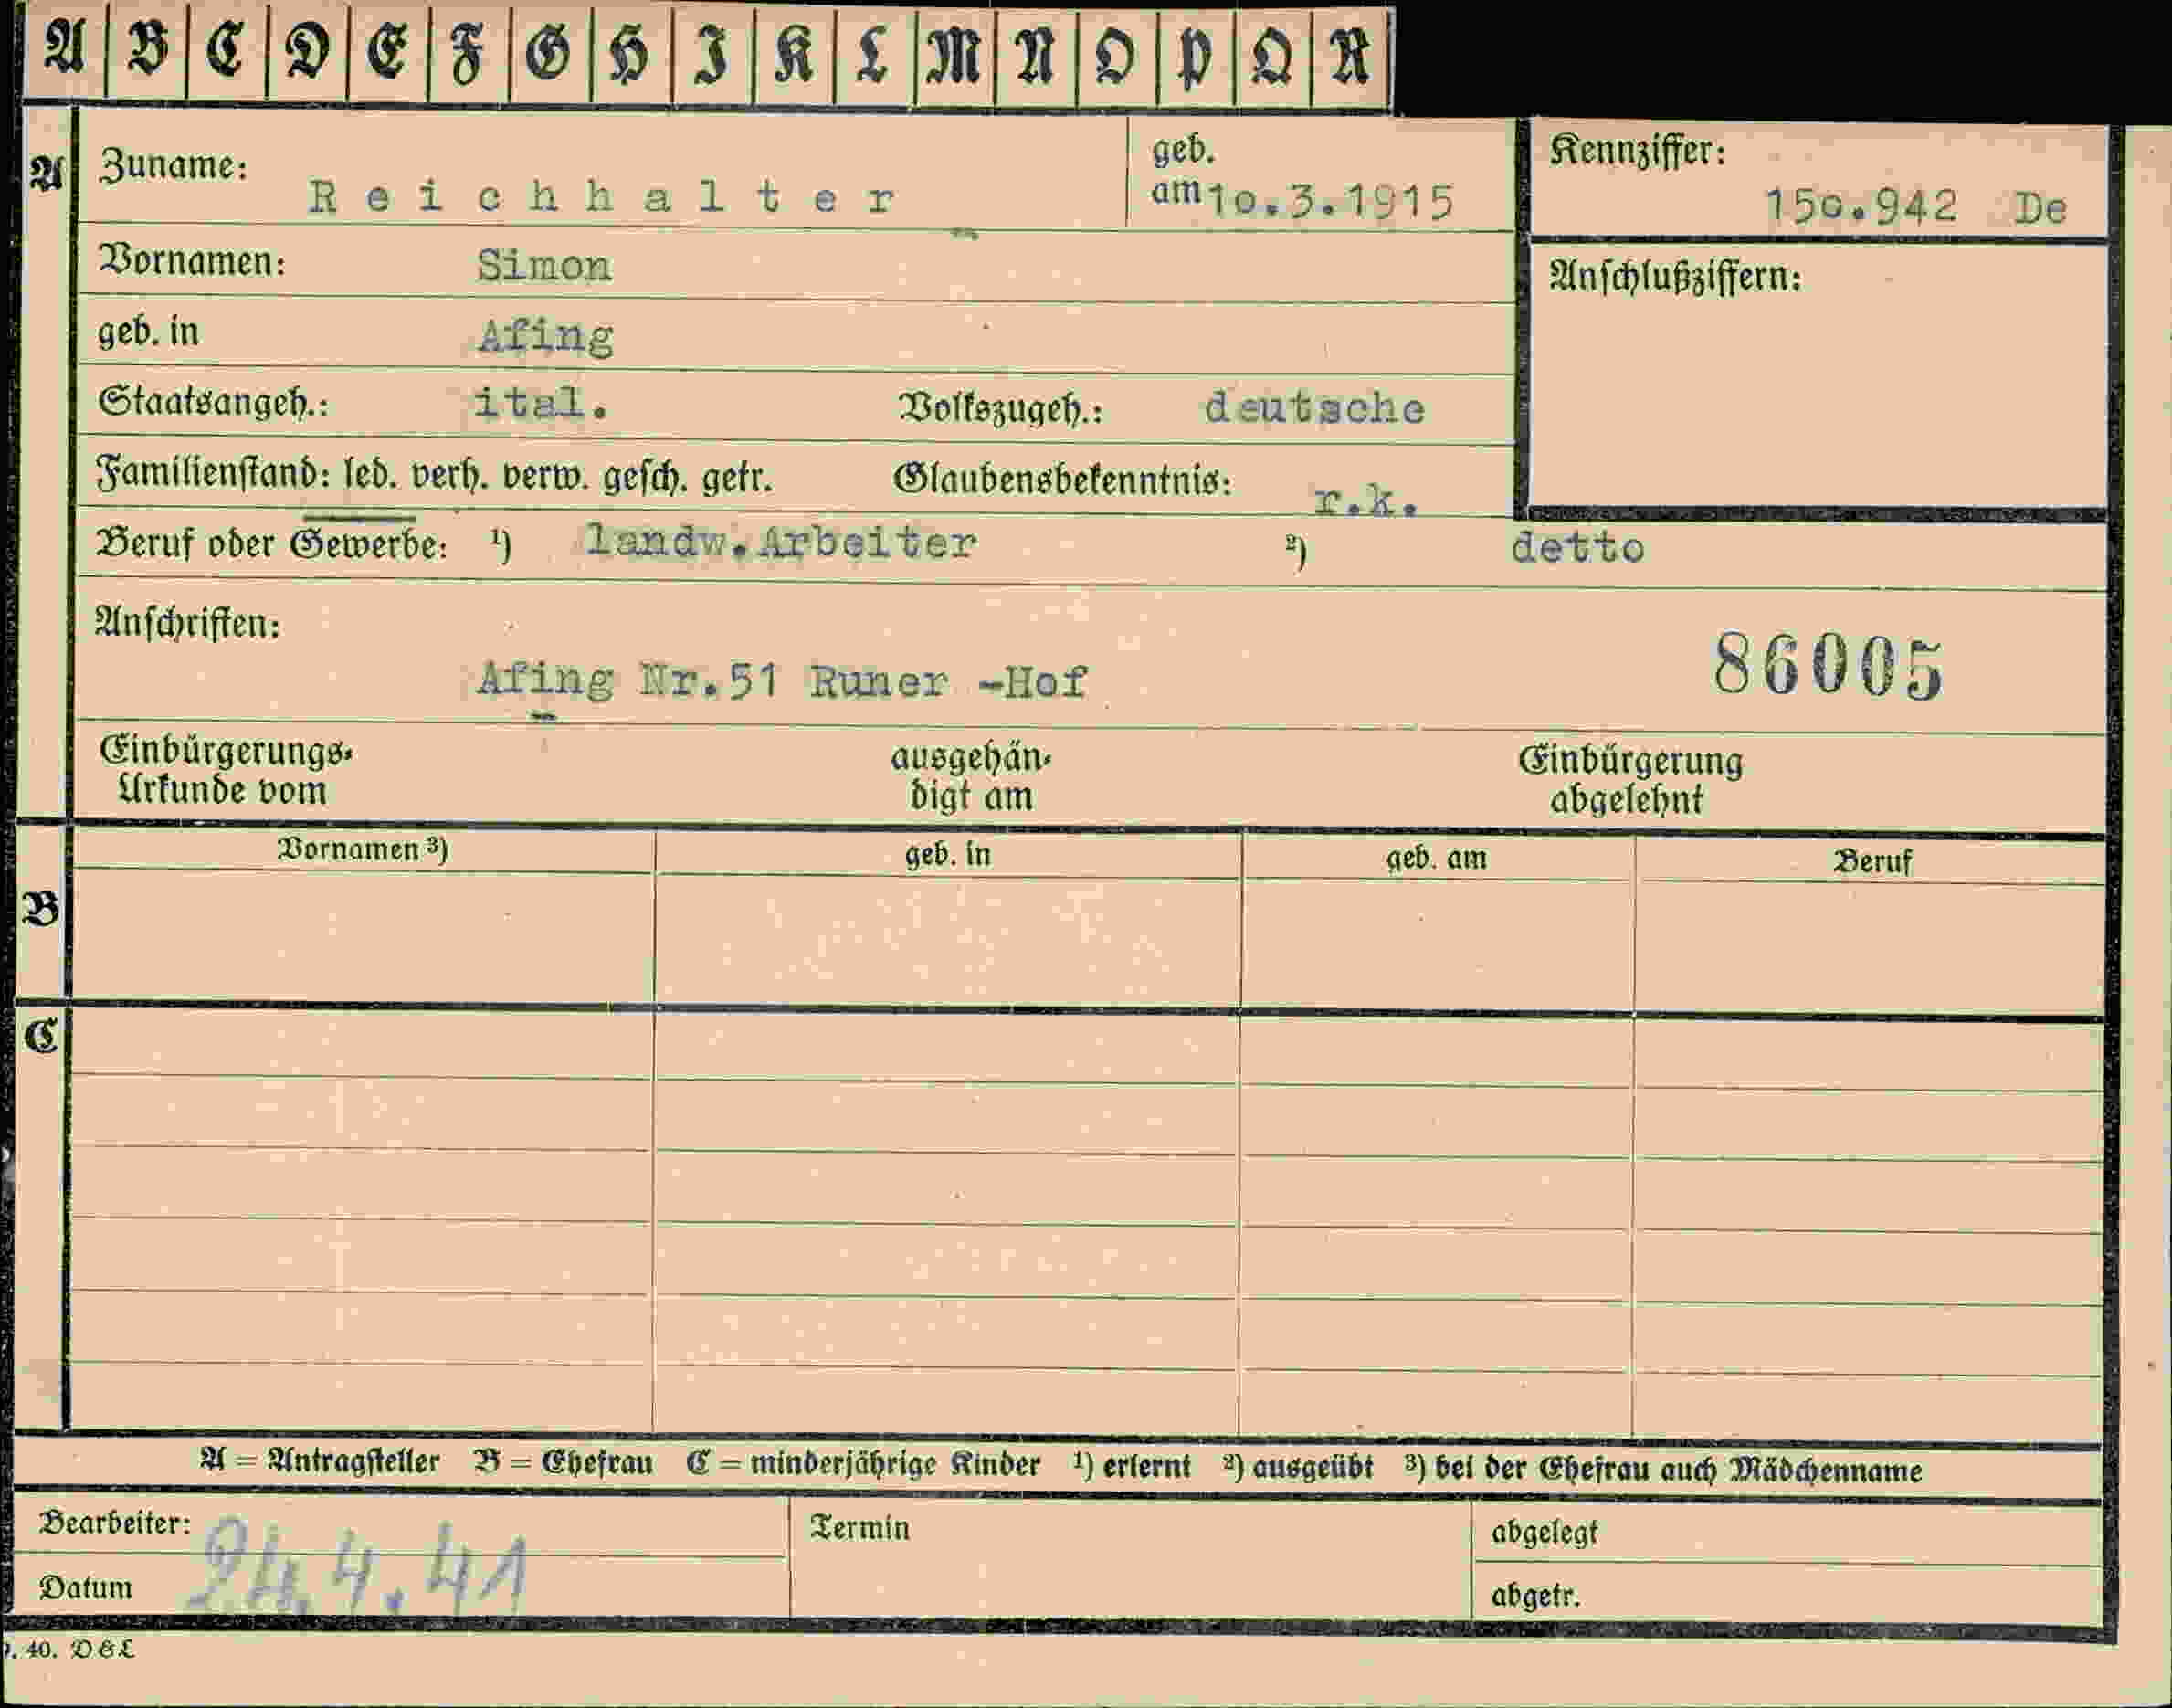 A B C D E F G H I K L M N O P Q R
A Zuname: Reichhalter geb. am 10.3.1915 Kennziffer: 150.942 De
Vornamen: Simon Anschlußziffern:
geb. in Afing
Staatsangeh.: ital. Volkszugeh.: deutsche
Familienstand: led. verh. verw. gesch. getr. Glaubensbekenntnis: r.k.
Beruf oder Gewerbe: ¹) landw.Arbeiter ²) detto
Anschriften:
Afing Nr.51 Runer -Hof 86005
Einbürgerungs- ausgehän- Einbürgerung
Urkunde vom digt am abgelehnt
Vornamen ³) geb. in geb. am Beruf
B
C
A = Antragsteller B = Ehefrau C = minderjährige Kinder ¹) erlernt ²) ausgeübt ³) bei der Ehefrau auch Mädchenname
Bearbeiter: Termin abgelegt
Datum 24.4.41 abgetr.
. 40. D & L